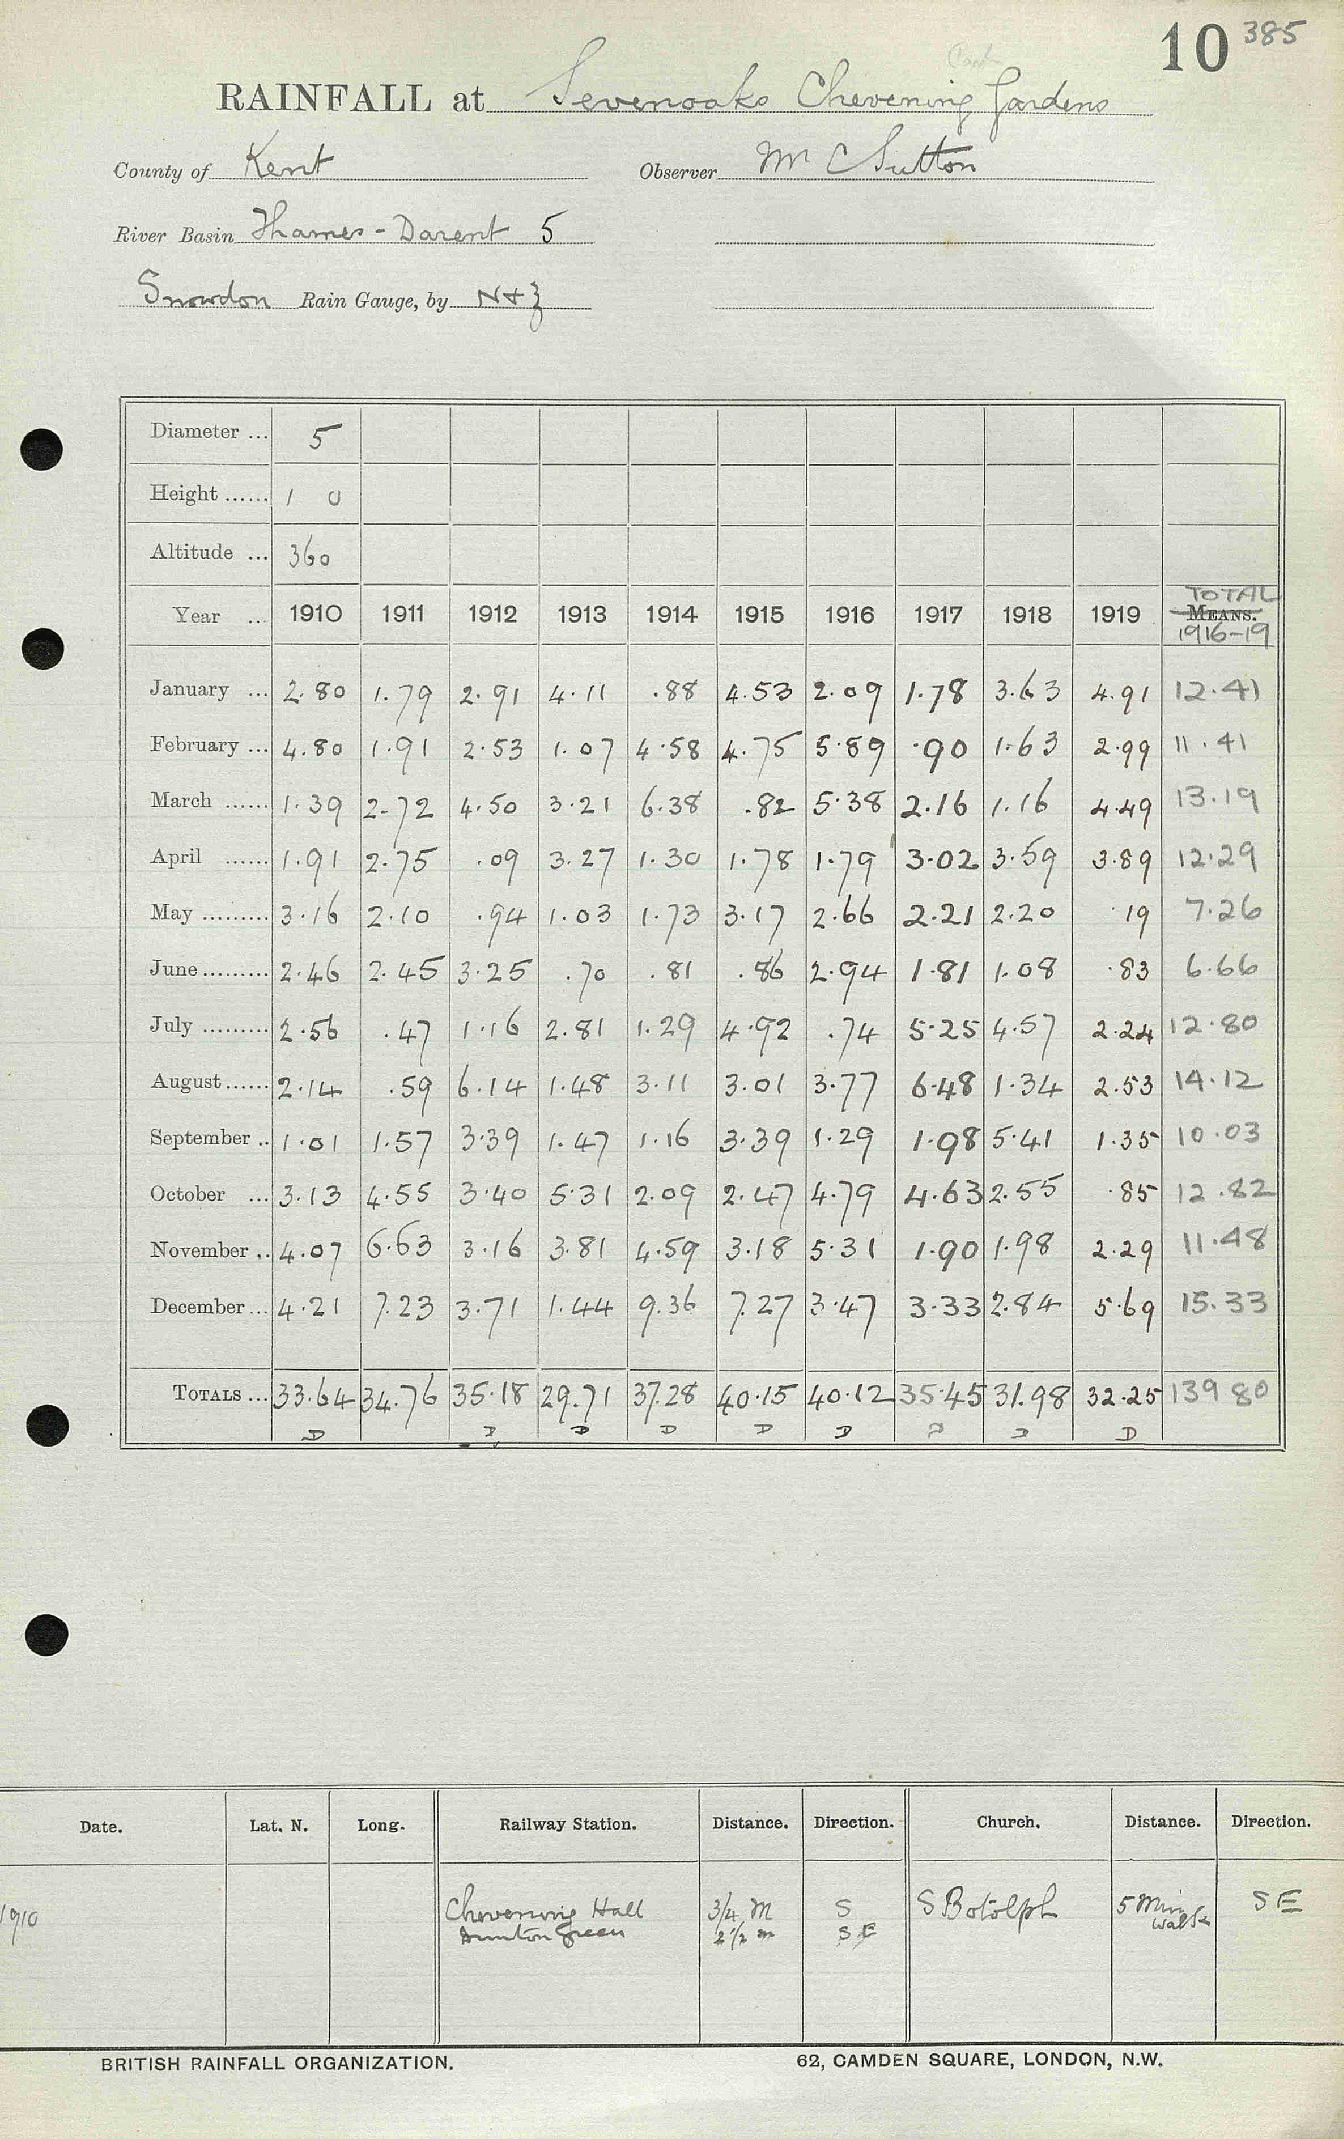 10 385
RAINFALL at Sevenoaks Chevening Gardens
County of Kent Observer Mr C Sutton
River Basin Thames - Darent 5
Snowdon Rain Gauge, by N+Z
Diameter ... 5
Height ...... 1 0
Altitude ... 360
TOTAL
Year ... 1910 1911 1912 1913 1914 1915 1916 1917 1918 1919 MEANS.
1916-19
January ... 2.80 1.79 2.91 4.11 .88 4.53 2.09 1.78 3.63 4.91 12.41
February ... 4.80 1.91 2.53 1.07 4.58 4.75 5.89 .90 1.63 2.99 11.41
March ...... 1.39 2.72 4.50 3.21 6.38 .82 5.38 2.16 1.16 4.49 13.19
April ...... 1.91 2.75 .09 3.27 1.30 1.78 1.79 3.02 3.59 3.89 12.29
May ......... 3.16 2.10 .94 1.03 1.73 3.17 2.66 2.21 2.20 .19 7.26
June ......... 2.46 2.45 3.25 .70 .81 .86 2.94 1.81 1.08 .83 6.66
July ......... 2.56 .47 1.16 2.81 1.29 4.92 .74 5.25 4.57 2.24 12.80
August ...... 2.14 .59 6.14 1.48 3.11 3.01 3.77 6.48 1.34 2.53 14.12
September .. 1.01 1.57 3.39 1.47 1.16 3.39 1.29 1.98 5.41 1.35 10.03
October ... 3.13 4.55 3.40 5.31 2.09 2.47 4.79 4.63 2.55 .85 12.82
November .. 4.07 6.63 3.16 3.81 4.59 3.18 5.31 1.90 1.98 2.29 11.48
December ... 4.21 7.23 3.71 1.44 9.36 7.27 3.47 3.33 2.84 5.69 15.33
TOTALS ... 33.64 34.76 35.18 29.71 37.28 40.15 40.12 35.45 31.98 32.25 139 80
D D D D D D D D D
Date. Lat. N. Long. Railway Station. Distance. Direction. Church. Distance. Direction.
1910 Chevening Hall 3/4 M S S Botolph 5 Min SE
Dunton Green 2 1/2 m SE walk
BRITISH RAINFALL ORGANIZATION. 62, CAMDEN SQUARE, LONDON, N.W.